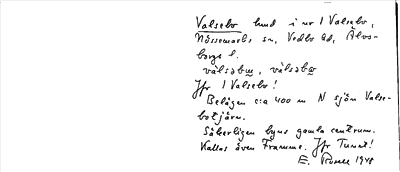 Valsebo hmd i nr 1 Valsebo,
Nössemarks sn, Vedbo hd, Älvs-
borgs l.
valsəbω, välsəbω
Jfr 1 Valsebo!
Belägen c:a 400 m N sjön Valse-
botjärn.
Säkerligen byns gamla centrum.
Kallas även Framme. Jfr Tunet!
E. 1948